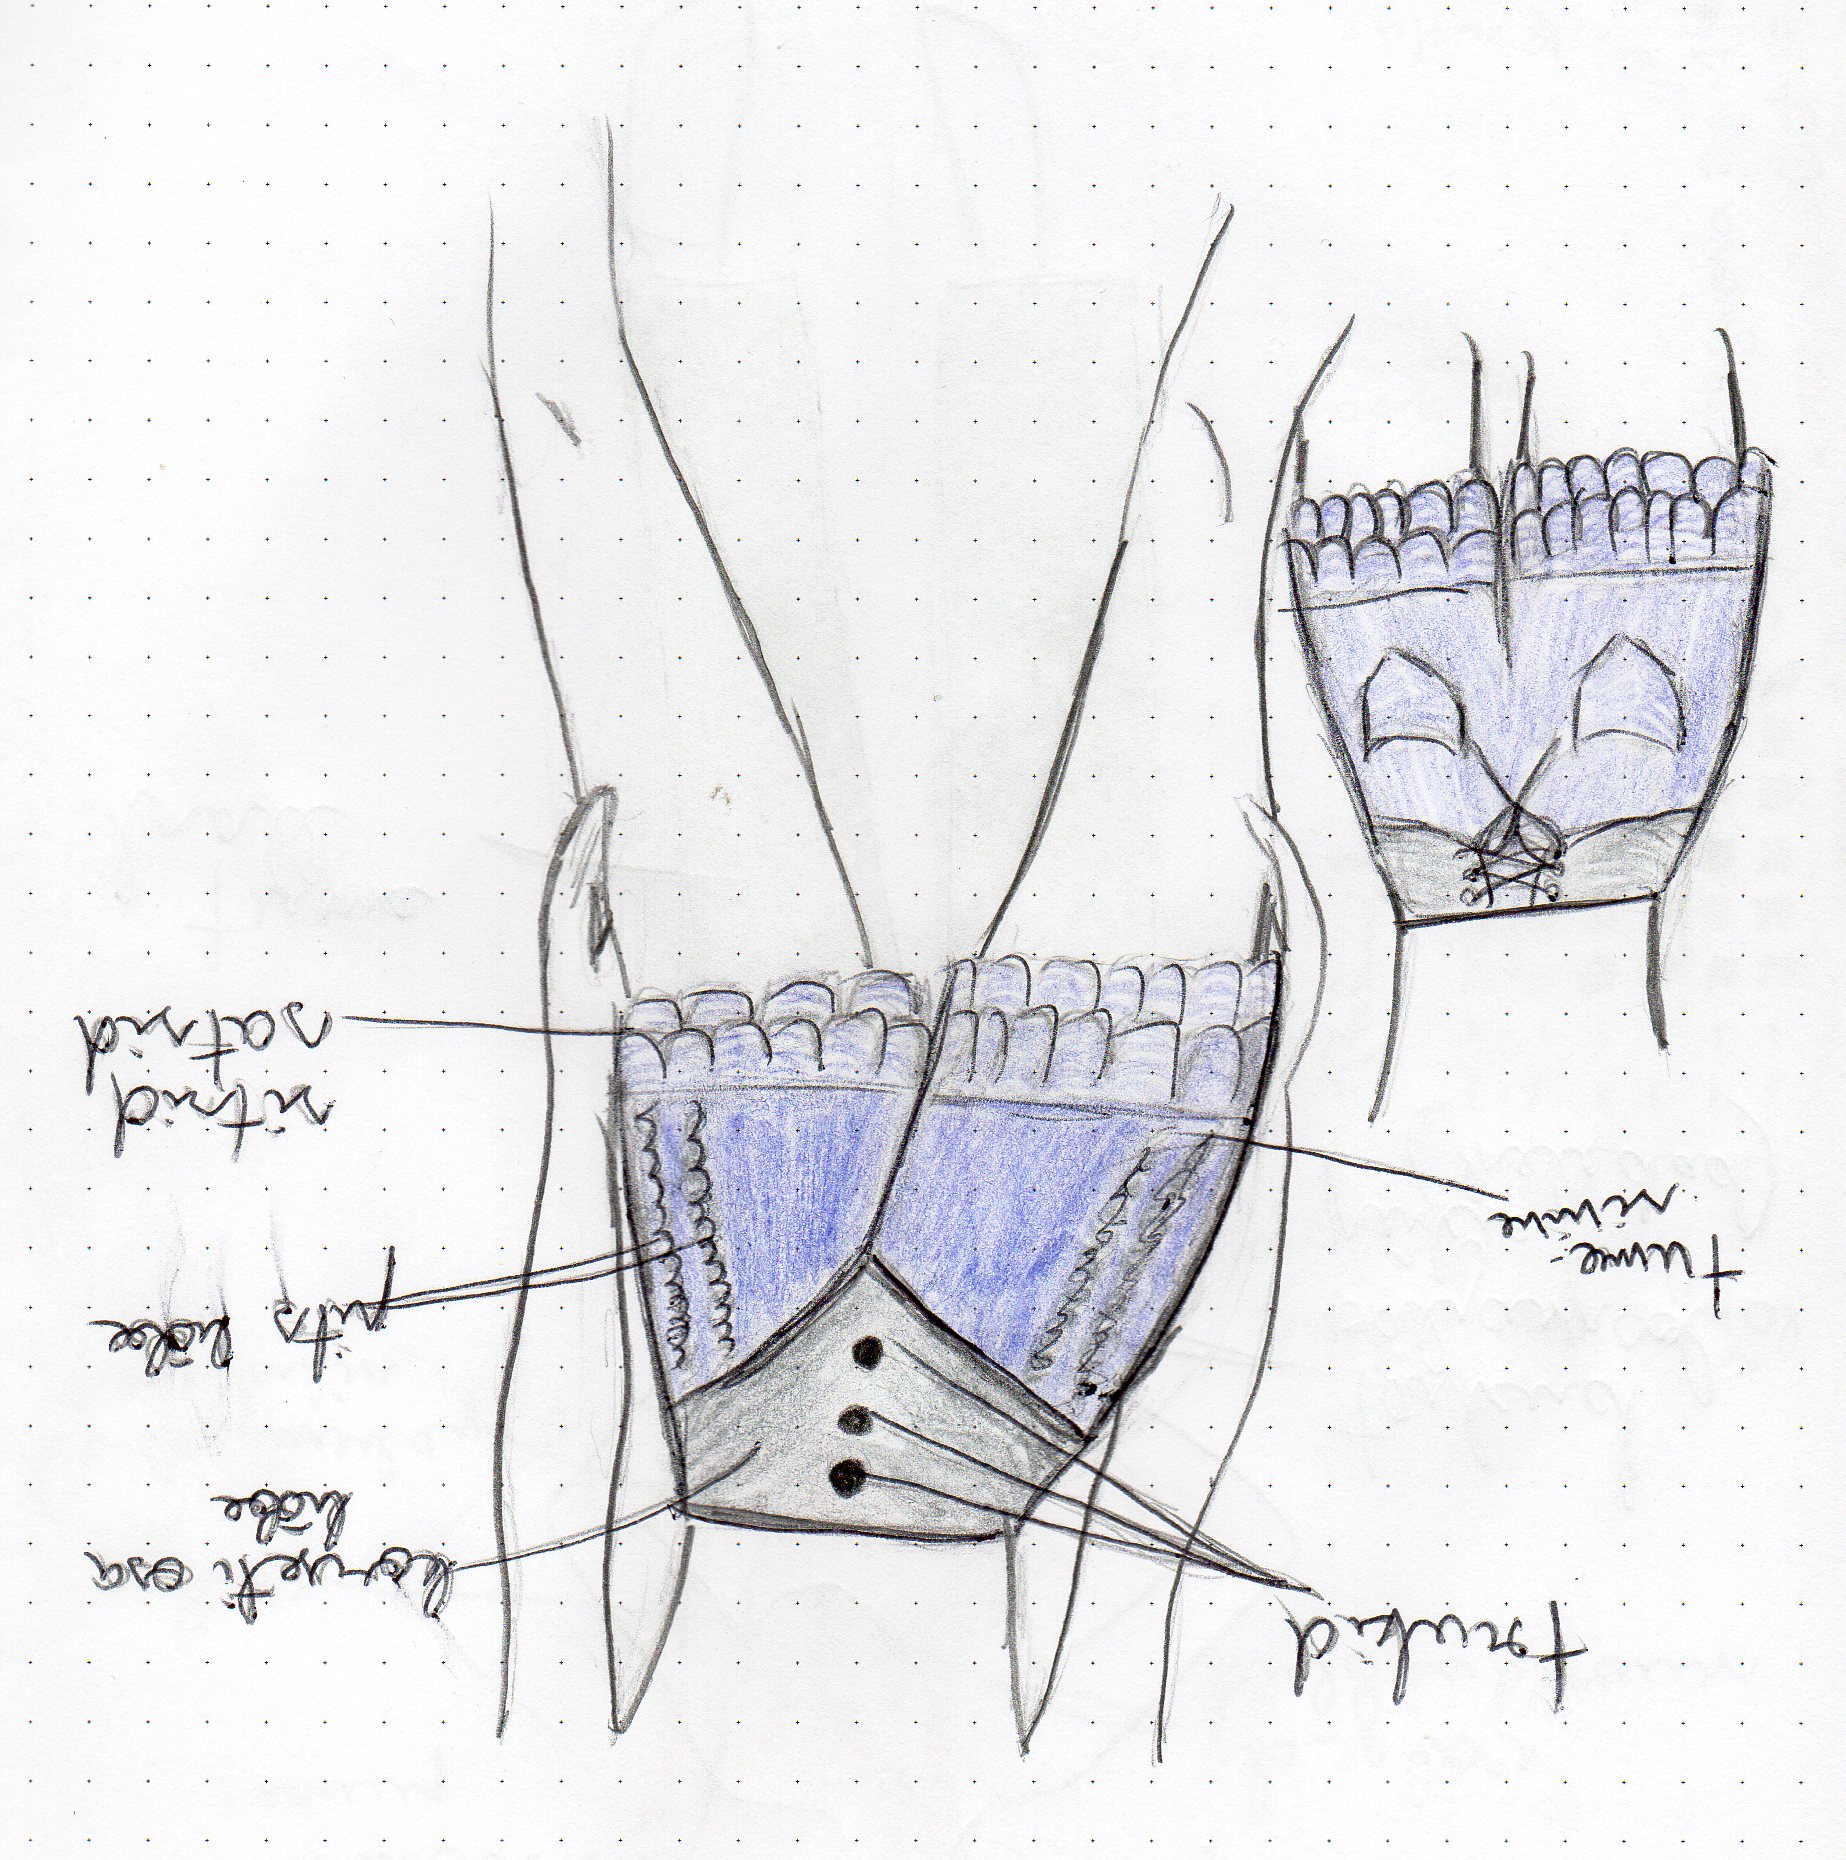 trukid
korseti osa
hõbe
pits hõbe
tume-
sinine
sitsid
satsid